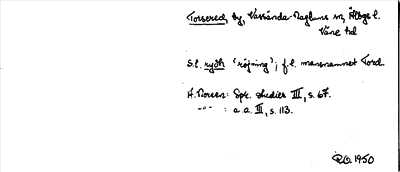 Torsered, by, Vassända-Naglums sn, Älvsb. l.
Väne hd
S.l. rydh 'röjning'; f.l. mansnamnet Tord.
A. Noreen: Spr. studier III, s. 67.
-"- : a.a. III, s. 113.
R.O. 1950